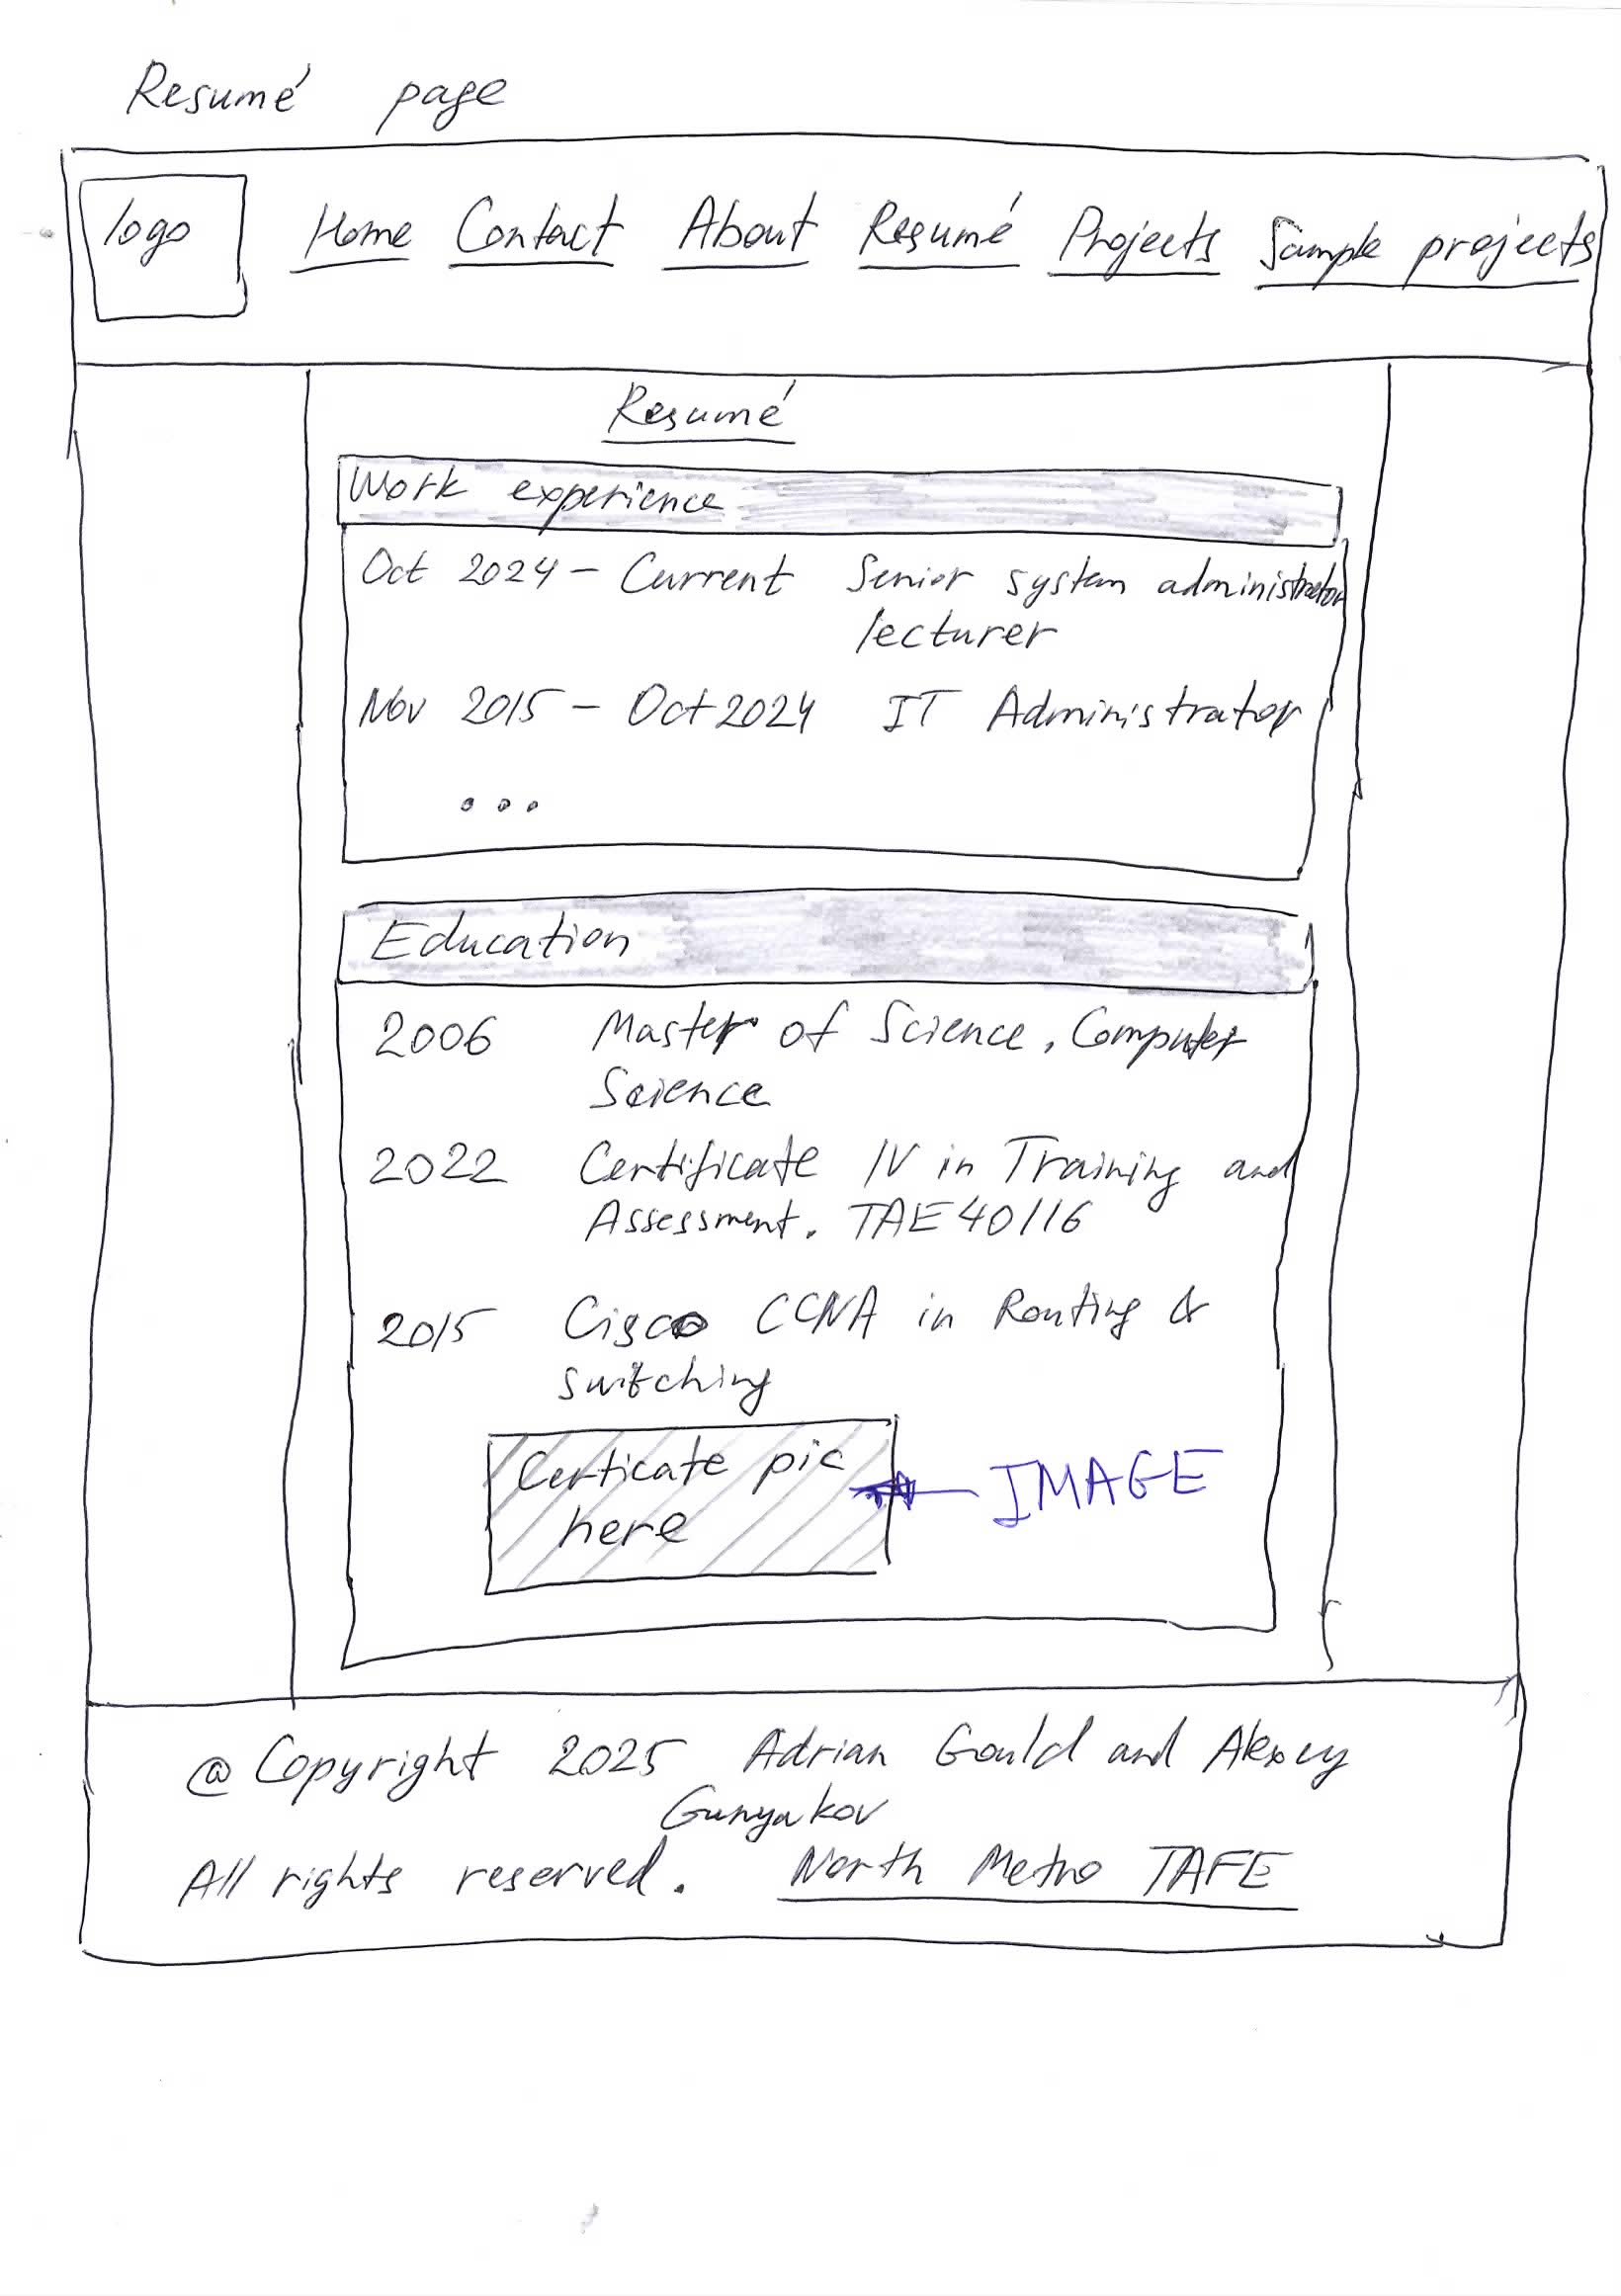 Resumé page
logo Home Contact About Resumé Projects Sample projects
Resumé
Work experience
Oct 2024 – Current Senior system administrator
lecturer
Nov 2015 – Oct 2024 IT Administrator
...
Education
2006 Master of Science, Computer
Science
2022 Certificate IV in Training and
Assessment. TAE40116
2015 Cisco CCNA in Routing &
switching
Certicate pic
here
IMAGE
@ Copyright 2025 Adrian Gould and Alexey
Gunyakov
All rights reserved. North Metro TAFE